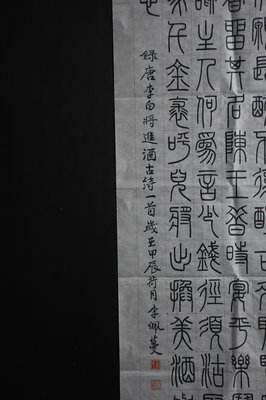 長醉
留其名陳王昔時宴平樂
主人何為言少錢徑須沽
千金裘呼兒將出換美酒
錄唐李白將進酒古詩一首歲至甲辰荷月李佩蔓